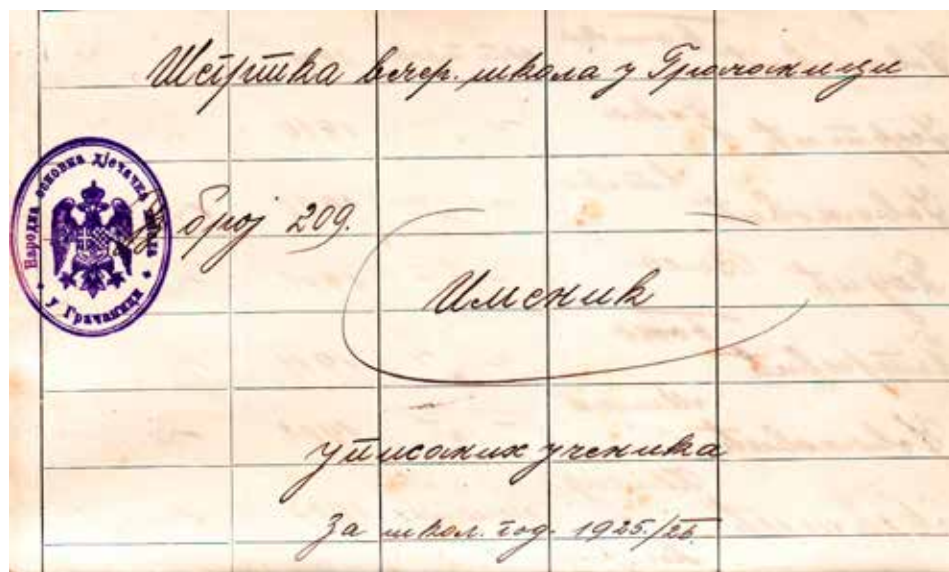 Шегртска вечер. школа у Грачаници
Народна основна дјечачка школа
у Грачаници
број 209.
Именик
уписаних ученика
за школ. год. 1925./26.